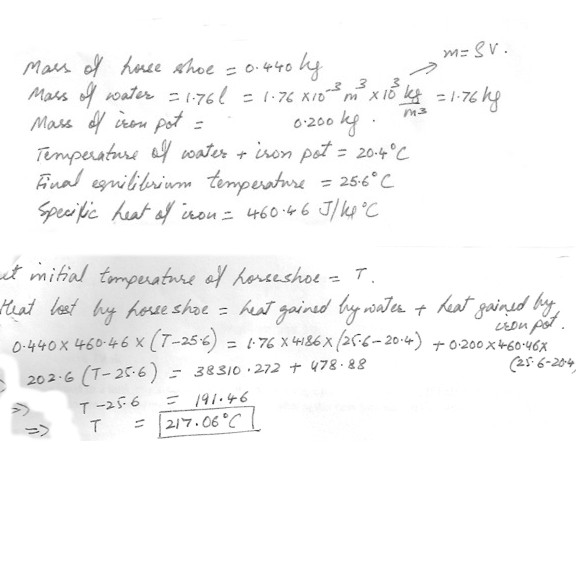 m = ρV.
Mass of horse shoe = 0.440 kg
Mass of water = 1.76l = 1.76 x10⁻³ m³ x 10³ kg/m³ = 1.76 kg
Mass of iron pot = 0.200 kg.
Temperature of water + iron pot = 20.4°C
Final equilibrium temperature = 25.6°C
Specific heat of iron = 460.46 J/kg°C
et initial temperature of horseshoe = T.
Heat lost by horse shoe = heat gained by water + heat gained by iron pot.
0.440 x 460.46 x (T-25.6) = 1.76 x 4186 x (25.6-20.4) + 0.200 x 460.46 x (25.6-20.4
202.6 (T-25.6) = 38310.272 + 478.88
=> T-25.6 = 191.46
=> T = 217.06°C